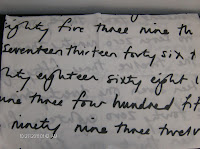 eighty five three nine th
seventeen thirteen forty six t
hty eighteen sixty eight
nine three four hundred fif
ninety nine three twelv